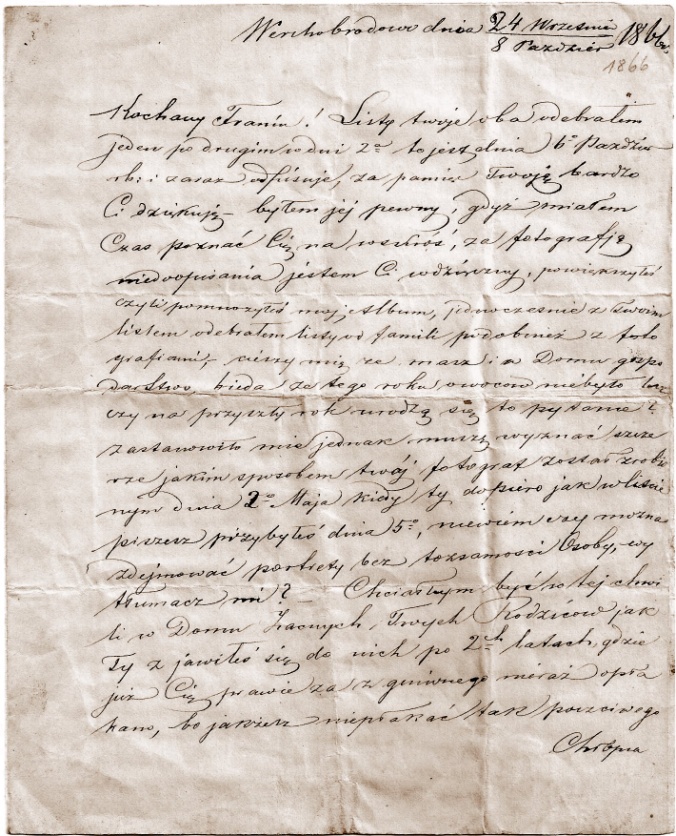 Werchobrodowo dnia 24 Wrzesnia 1866
8 Pazdzier
1866
Kochany Franiu! Listy twoje oba odebrałem
jeden po drugim w dni 2ͦ to jest dnia 6ͦ Pazdzier
rb: i zaraz odpisuję, za pamięć Twoją bardzo
Ci dziękuję – byłem jej pewny, gdyż miałem
Czas poznać Cię na wskróś, za fotografię
niedoopisania jestem Ci wdzięczny, powiększyłeś
czyli pomnożyłeś moj Album, jednocześnie z Twoim
listem odebrałem listy od familii podobnież z foto
grafiami, – cieszy mię że masz i w Domu gospo
darstwo, bieda że tego roku owocow niebyło lecz
czy na przyszły rok urodzą się to pytanie?
zastanowiło mie jednak muszę wyznać szcze
rze jakim sposobem twój fotograf został zrobio
nym dnia 2ͦ Maja kiedy ty dopiero jak w liscie
piszesz przybyłeś dnia 5ͦ, niewiem czy można
zdejmować portrety bez tozsamości Osoby, – wy
tłumacz mi? – Chciałbym być w tej chwi
li w Domu Zacnych Twych Rodziców jak
Ty zjawiłeś się do nich po 2ch latach, gdzie
już Cię prawie za zginionego nieraz opła
kano, bo jakżesz niepłakać tak poczciwego
Chłopca